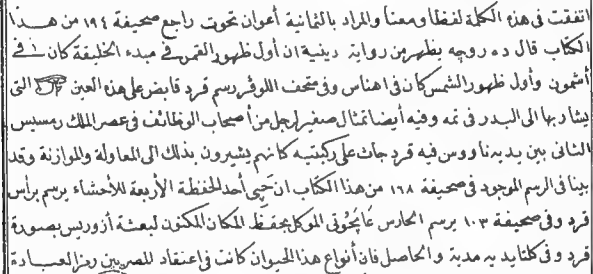 اتفقت فى هذه الكلمة لفظا ومعنا والمراد بالثمانية أعوان تحوت راجع صحيفة ١٩٤ من هـــذا
الكتاب قال ده روچه يظهر من رواية دينية ان أول ظهور القمر فى مبدء الخليقة كان فى
أشمون وأول ظهور الشمس كان فى اهناس وفى متحف اللوڤر رسم قرد قابض على هذه العين التى
يشار بها الى البدر فى تمه وفيه أيضا تمثال صغير لرجل من أصحاب الوظائف فى عصر الملك رمسيس
الثانى بين يديه ناووس فيه قرد جاث على ركبتيه كانهم يشيرون بذلك الى المعاولة والموازنة وقد
بينا فى الرسم الموجود فى صحيفة ١٦٨ من هذا الكتاب ان حپى أحد الحفظة الأربعة للأحشاء يرسم برأس
قرد وفى صحيفة ١٠٣ يرسم الحارس الموكل بحفظ المكان المكنون لبعثة أزوريس بصورة
قرد وفى كلتا يديه مدية والحاصل فان أنواع هذا الحيوان كانت فى اعتقاد المصريين رمزا لعبـــادة